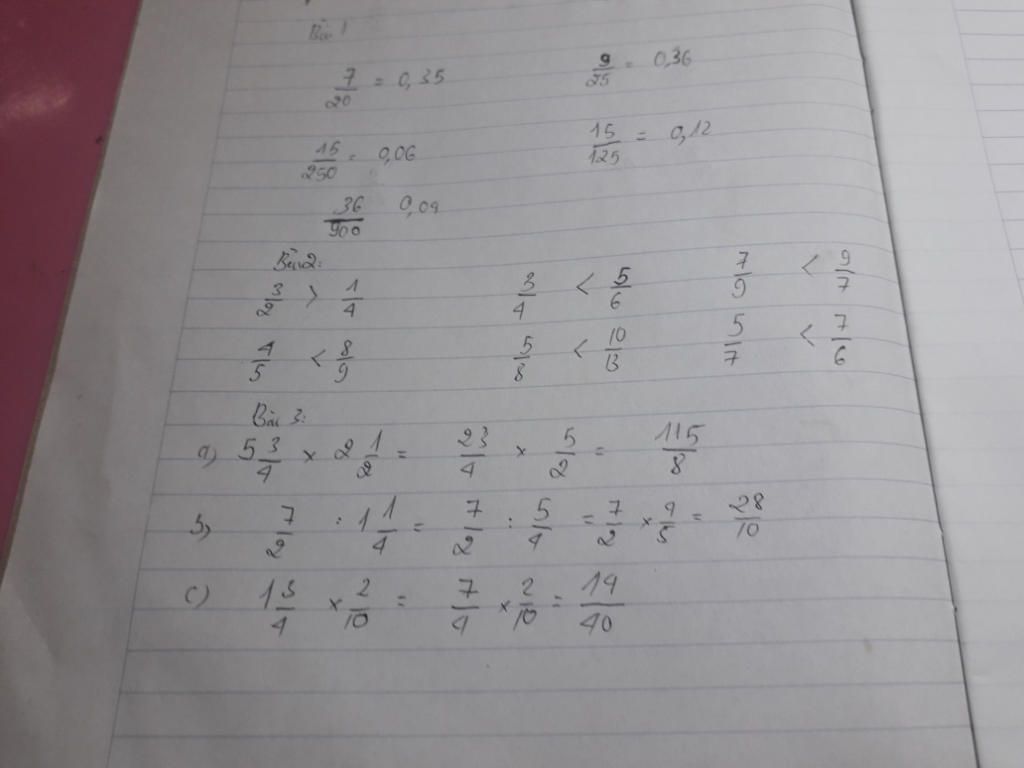 Bài 1
7/20 = 0,35 9/25 = 0,36
15/250 = 0,06 15/125 = 0,12
36/900 0,04
Bài 2:
3/2 > 1/4 3/4 < 5/6 7/9 < 9/7
4/5 < 8/9 5/8 < 10/13 5/7 < 7/6
Bài 3:
a) 5 3/4 × 2 1/2 = 23/4 × 5/2 = 115/8
b) 7/2 : 1 1/4 = 7/2 : 5/4 = 7/2 × 4/5 = 28/10
c) 1 3/4 × 2/10 = 7/4 × 2/10 = 14/40